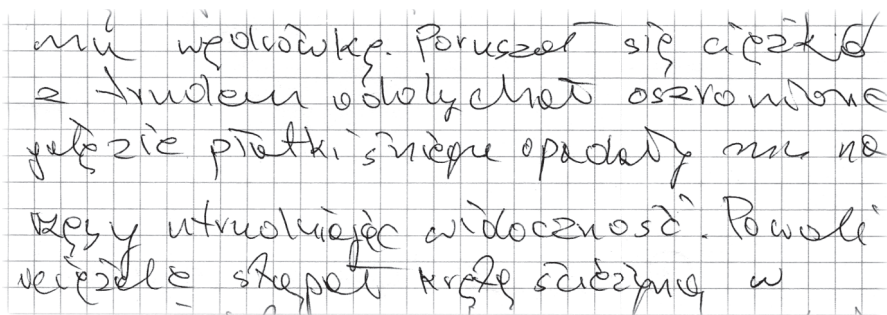 mu wędrówkę. Poruszał się ciężko
z trudem oddychał oszronione
gałęzie płatki śniegu opadały mu na
rzęsy utrudniając widoczność. Powoli
stąpał krętą ścieżyną w